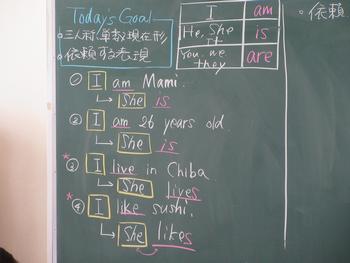 Today's Goal
○三人称・単数現在形
○依頼する表現
I am
He, She it is
You, we they are
○依頼
① I am Mami.
→ She is
② I am 26 years old.
→ She is
*③ I live in Chiba
→ She lives
*④ I like sushi.
→ She likes